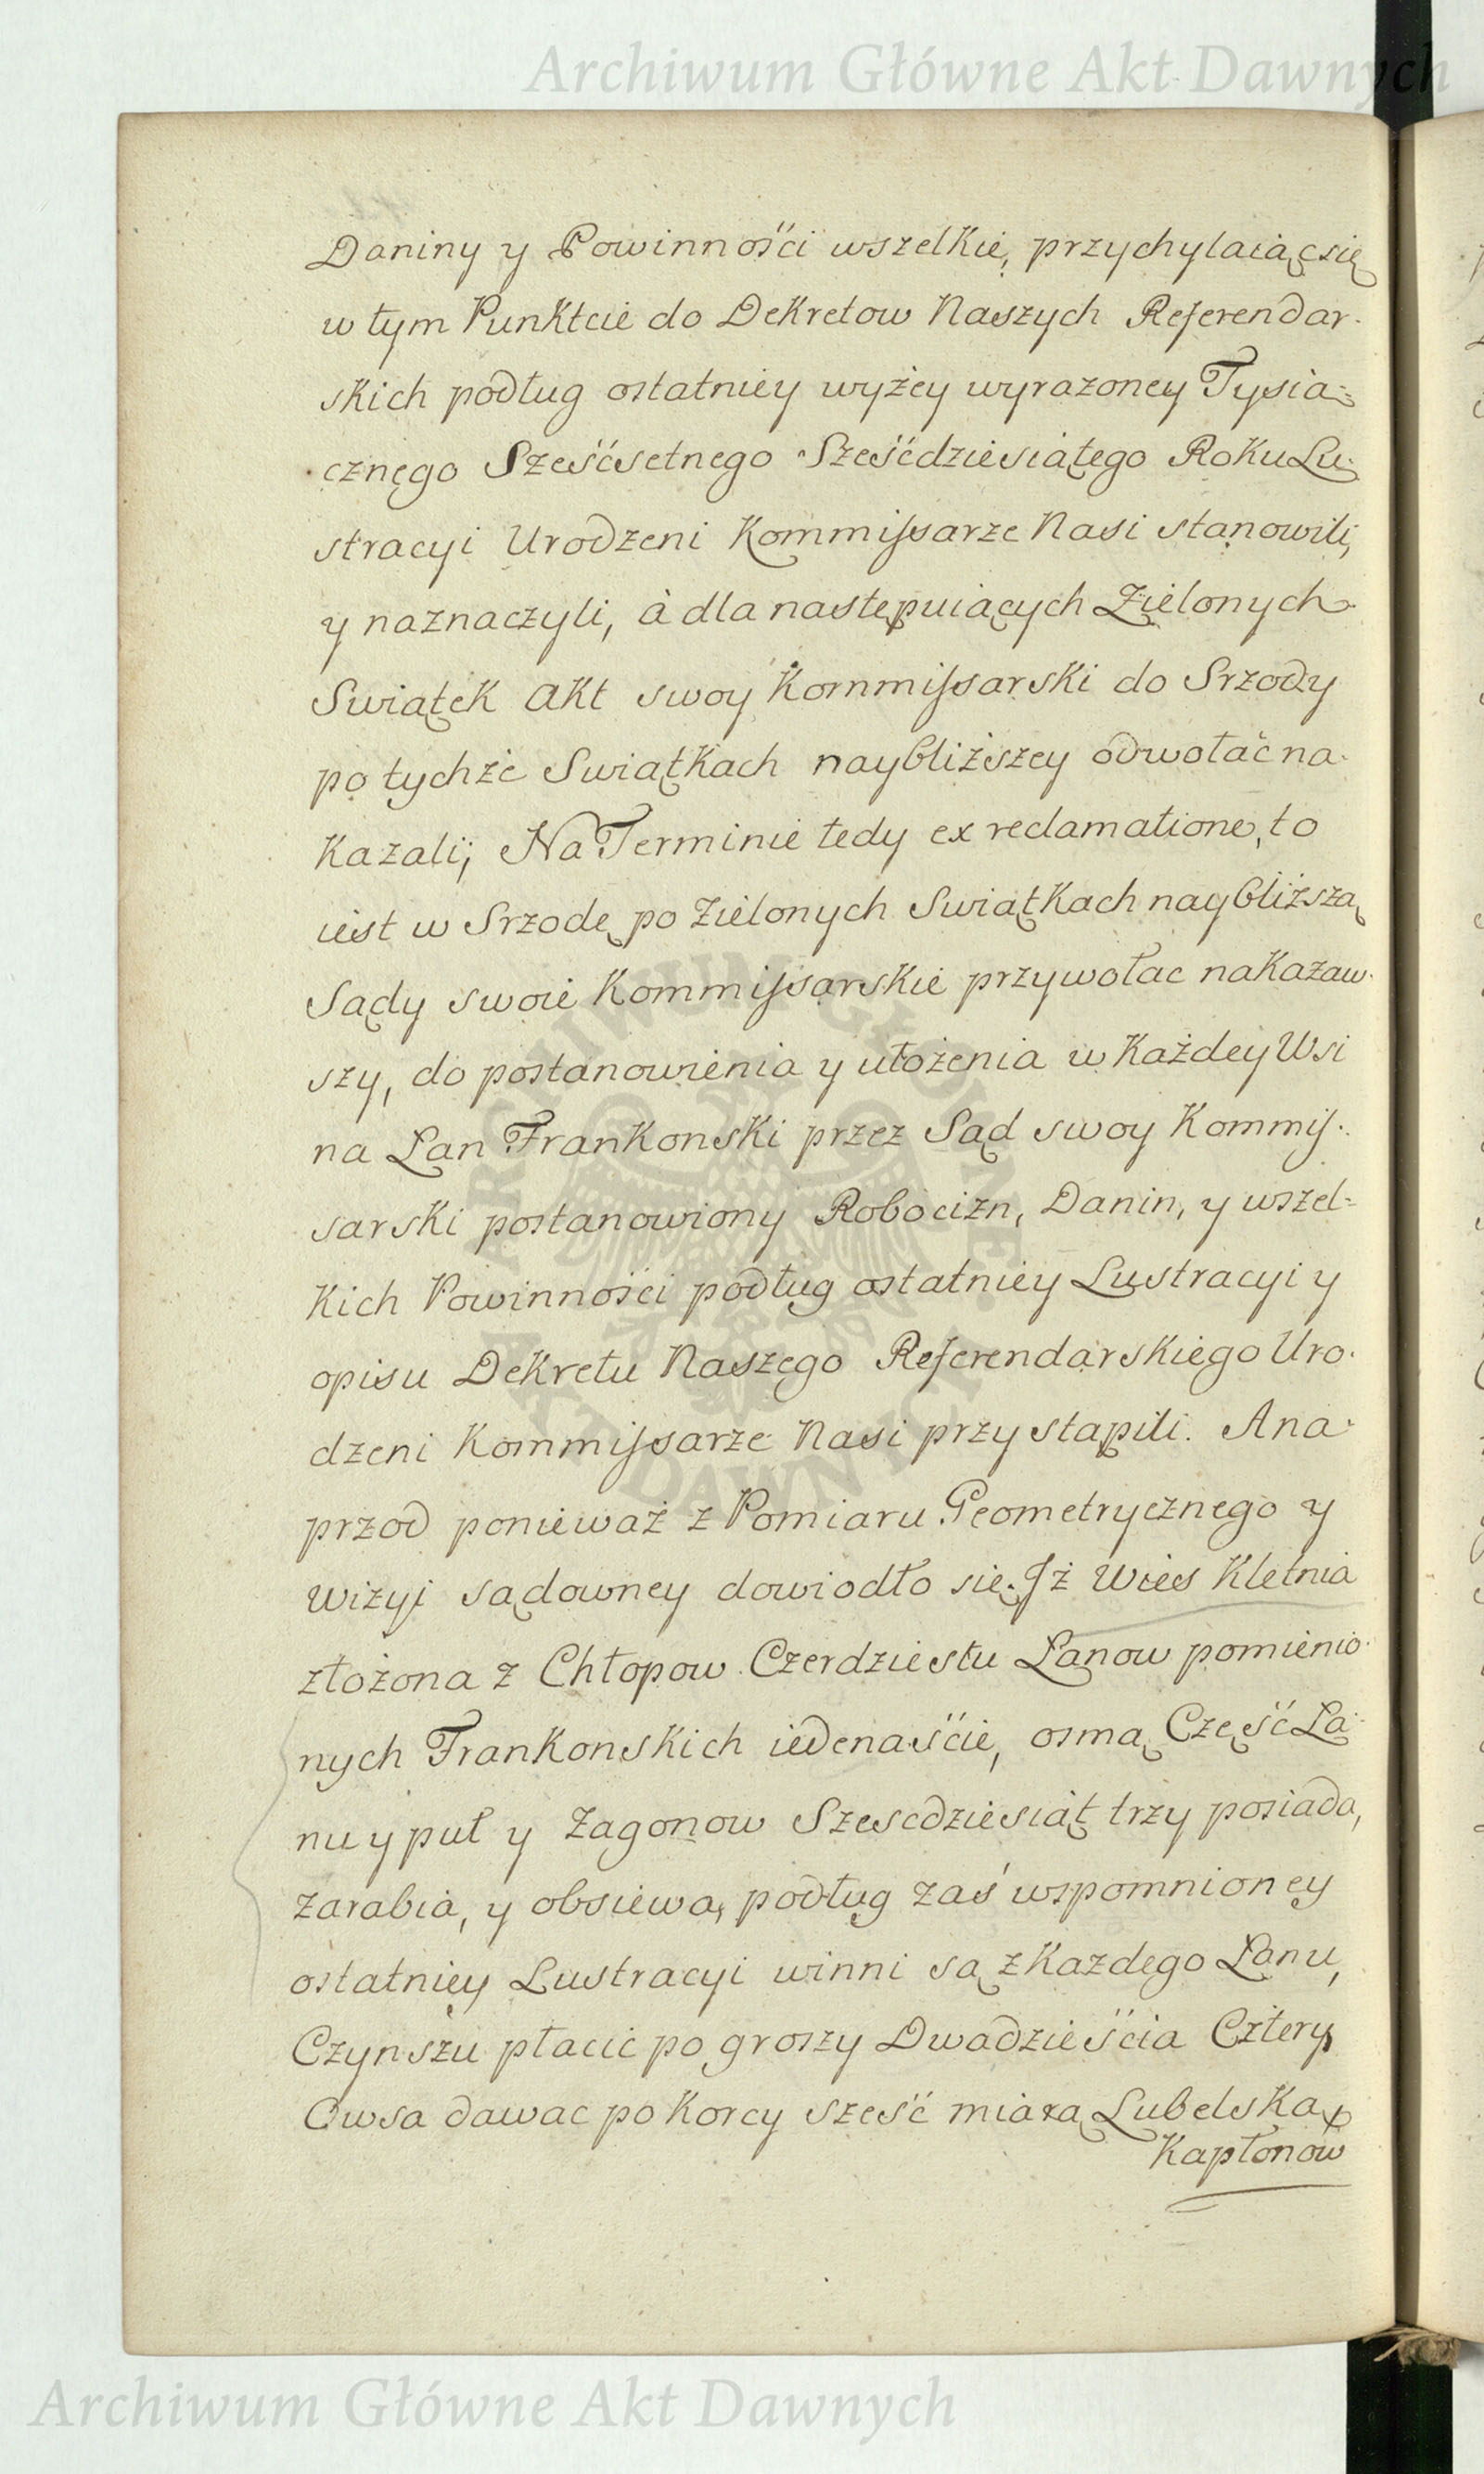 Archiwum Główne Akt Dawnych
Daniny y Powinnośći wszelkie, przychylaiąc się
w tym Punktcie do Dekretow Naszych Referendar-
skich podług ostatniey wyżey wyrazoney Tysią-
cznego Sześćsetnego Sześćdziesiątego Roku Lu-
stracyi Urodzeni Kommissarze Nasi stanowili,
y naznaczyli, à dla następuiących Zielonych
Swiątek Akt swoy Kommissarski do Srzody
po tychże Swiątkach naybliższey odwołać na-
kazali; Na Terminie tedy ex reclamatione, to
iest w Srzodę po Zielonych Swiątkach naybliższą
Sądy swoie Kommissarskie przywołac nakazaw-
szy, do postanowienia y ułożenia w każdey Wsi
na Łan Frankonski przez Sąd swoy Kommis-
sarski postanowiony Robocizn, Danin, y wszel-
kich Powinnośći podług ostatniey Lustracyi y
opisu Dekretu Naszego Referendarskiego Uro-
dzeni Kommissarze Nasi przystąpili. A na-
przod ponieważ z Pomiaru Geometrycznego y
Wizyi sądowney dowiodło się. Jż Wies Kletnia
złożona z Chłopow Czerdziestu Łanow pomienio-
nych Frankonskich iedenaśćie, osmą Część Ła-
nu y puł y Zagonow Szescdziesiąt trzy posiada,
zarabia, y obsiewa, podług zaś wspomnioney
ostatniey Lustracyi winni są z każdego Łanu,
Czynszu płacić po groszy Dwadzieśćia Cztery,
Owsa dawac po Korcy sześć miarą Lubelską,
Kapłonow
ARCHIWUM GŁÓWNE AKT DAWNYCH
Archiwum Główne Akt Dawnych